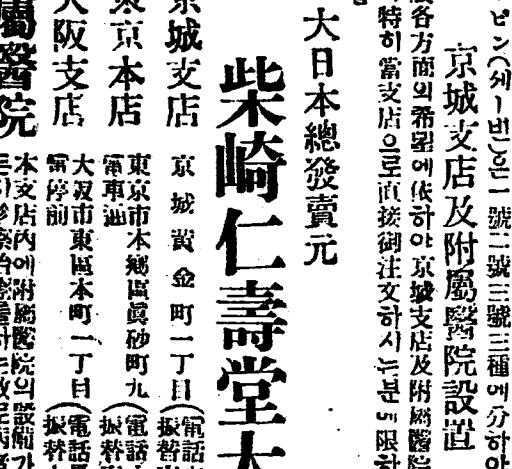 ピン(쎄ー빈)은一號二號三號三種에分하야
京城支店及附屬醫院設置
各方面의希望에依하야京城支店及附屬醫院
特히當支店으로直接御注文하시는분에限하
大日本總發賣元
柴崎仁壽堂大
京城支店 京城黃金町一丁目(電話 振替
東京本店 東京市本鄕區眞砂町九 電車通(電話 振替
大阪支店 大阪市東區本町一丁目 電停前(電話 振替
屬醫院 本支店內에附屬醫院의設備가